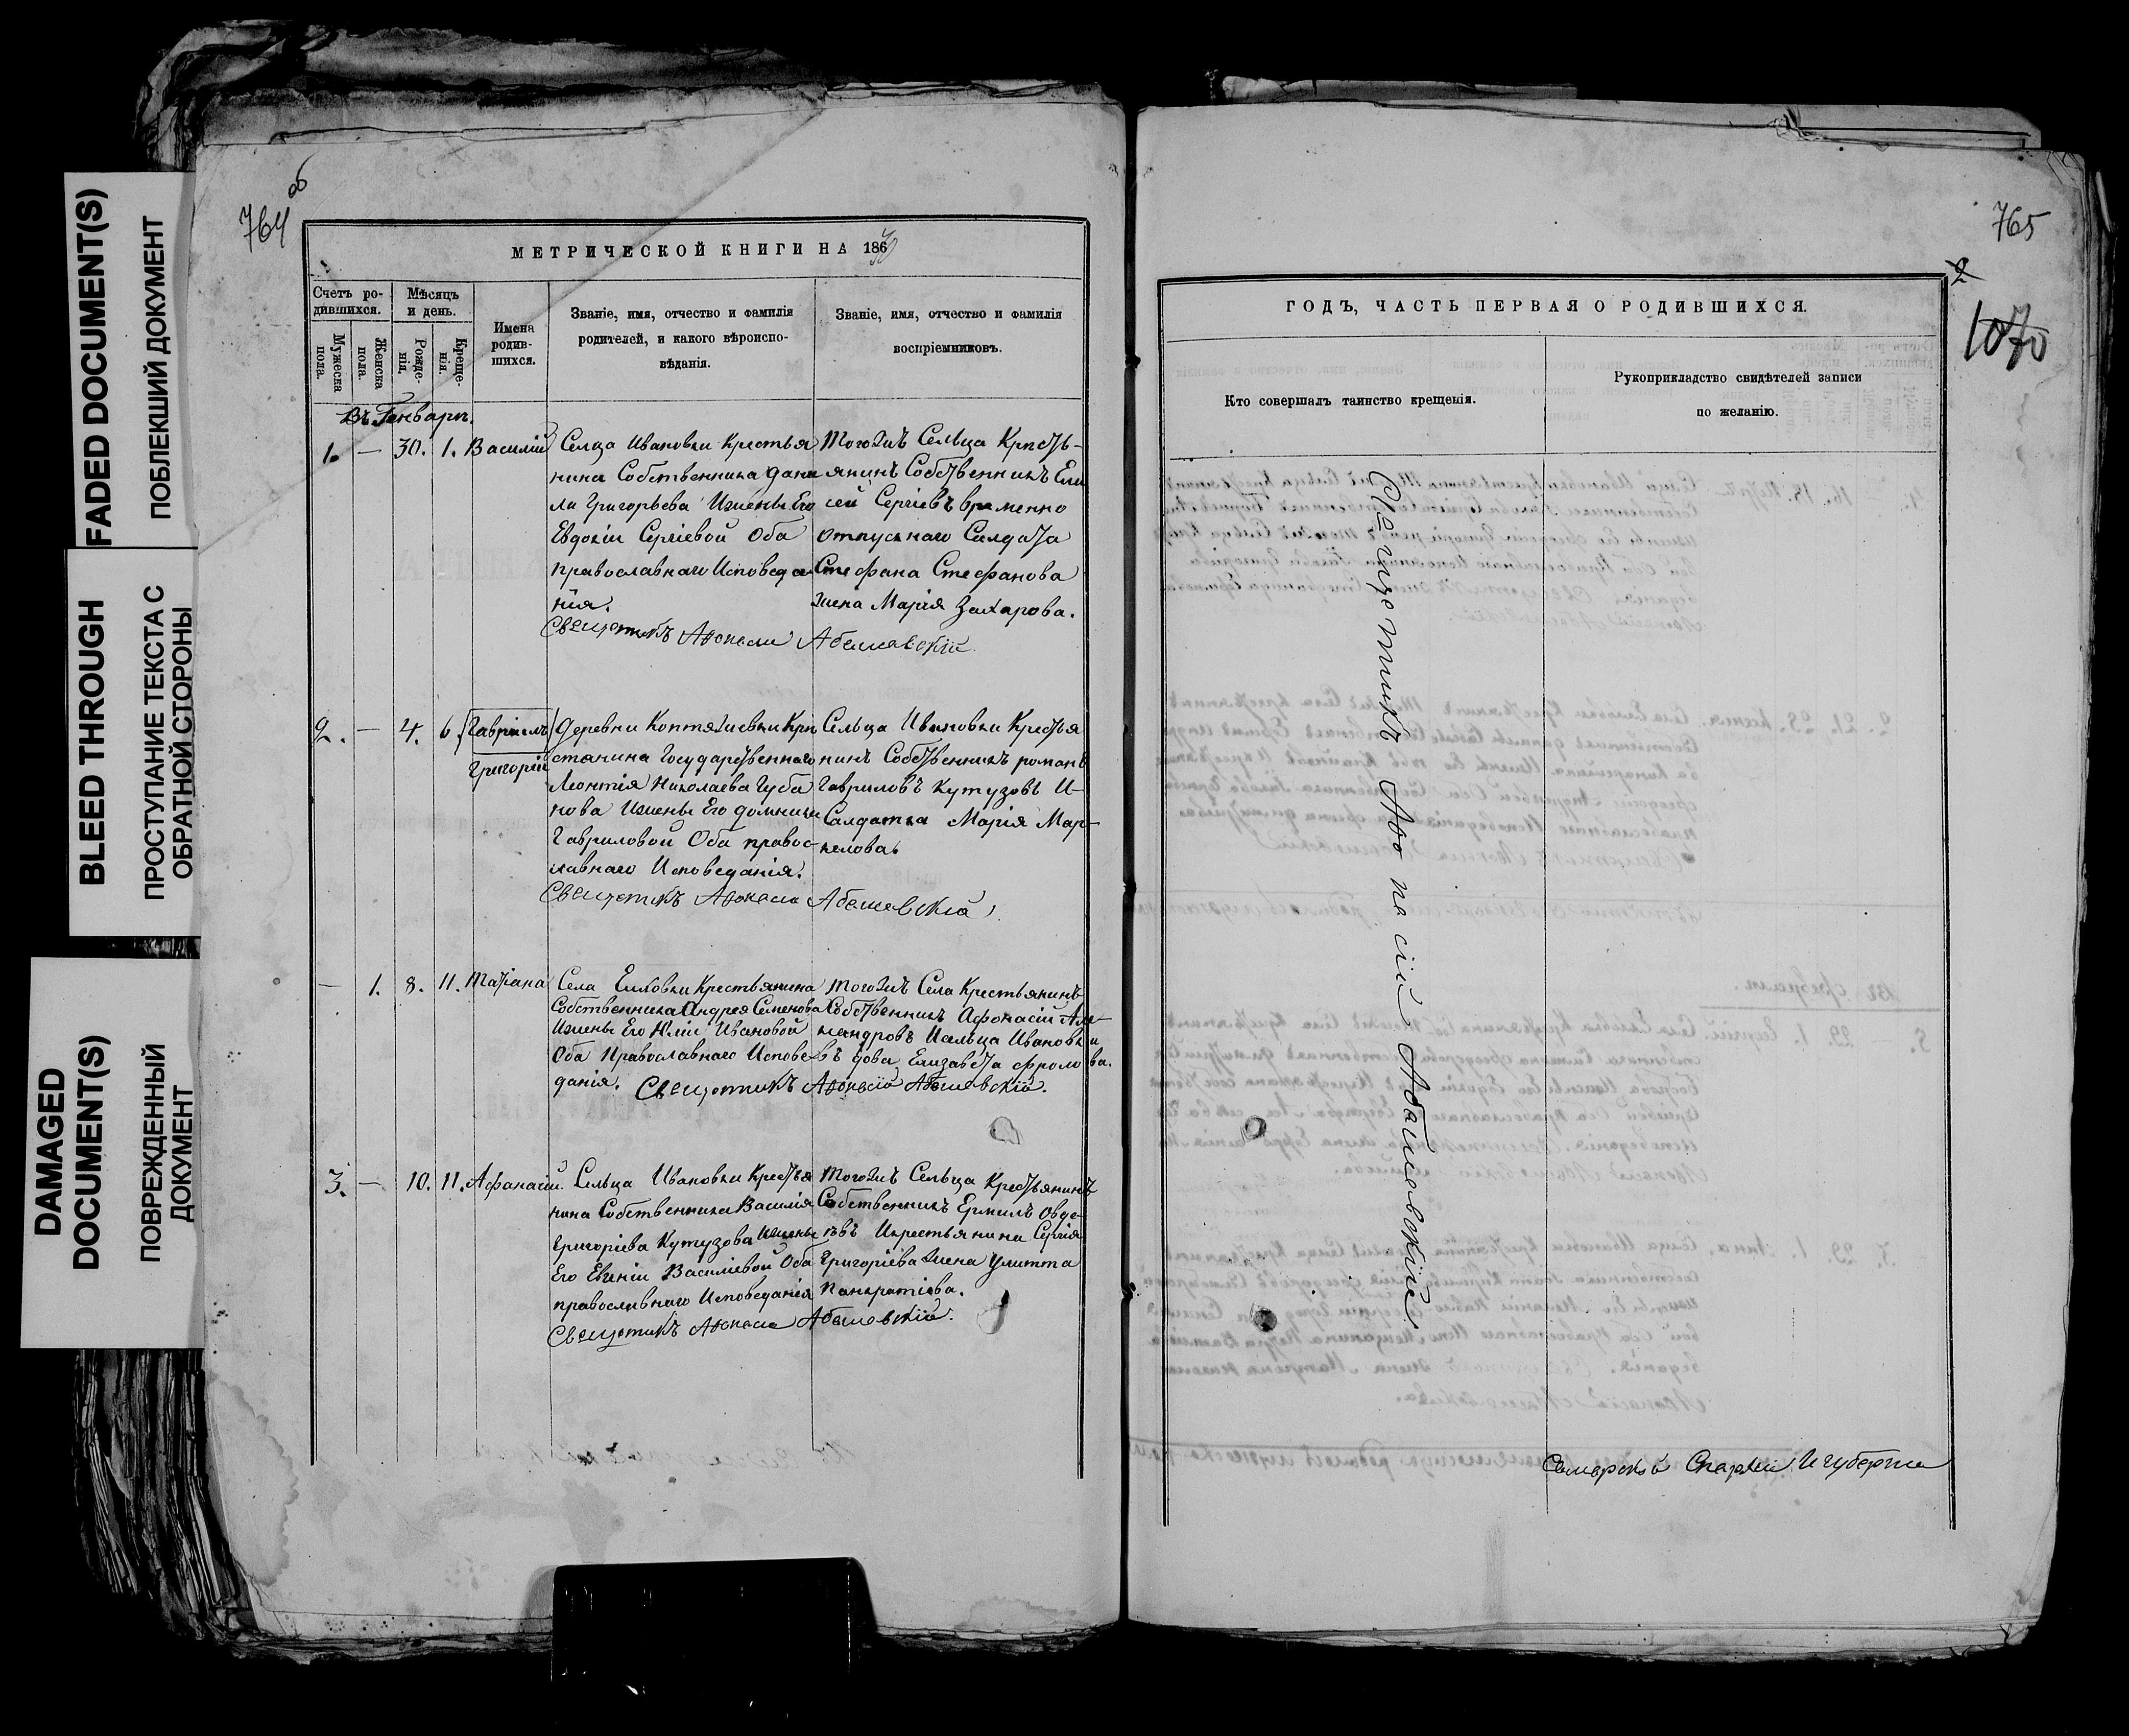 FADED DOCUMENT(S)
ПОБЛЕКШИЙ ДОКУМЕНТ
BLEED THROUGH
ПРОСТУПАНИЕ ТЕКСТА С
ОБРАТНОЙ СТОРОНЫ
DAMAGED
DOCUMENT(S)
ПОВРЕЖДЕННЫЙ
ДОКУМЕНТ
об
764
МЕТРИЧЕСКОЙ КНИГИ НА 1870
Счетъ ро-
дившихся.
Мужеска
пола.
Женска
пола.
Мѣсяцъ
и день.
Рожде-
нія.
Креще-
нія.
Имена
родив-
шихся.
Званіе, имя, отчество и фамилія
родителей, и какого вѣроиспо-
вѣданія.
Званіе, имя, отчество и фамилія
воспріемниковъ.
Въ Генварѣ.
1. — 30. 1. Василій
Сельца Ивановки Крестья
нина Собственника Дани
ла Григорьева Ижены Его
Евдокіи Сергіевой Оба
православнаго Исповеда
нія.
Тогожъ Сельца Кресть-
янинъ Собственникъ Ели
сей Сергіевъ временно
отпускнаго Салдата
Стефана Стефанова
жена Марія Захарова.
Священникъ Афонасій Абашевскій
2. — 4. 6. Гавріилъ
Григорій
Деревни Коптяжевки Кре
стянина Государственнаго
Леонтія Николаева Губа
нова Ижены Его Домники
Гавриловой Оба правос-
лавнаго Исповеданія.
Сельца Ивановки Крестья
нинъ Собственникъ романъ
Гавриловъ Кутузовъ И-
Салдатка Марія Мар-
келова.
Священникъ Афонасій Абашевскій
— 1. 8. 11. Татіана
Села Елховки Крестьянина
Собственника Андрея Семенова
Ижены Его Юліи Ивановой
Оба Православнаго Испове-
данія.
Тогожъ Села Крестьянинъ
Собственникъ Афонасій Але-
ксандровъ Исельца Ивановки
вдова Елизавета Фролова.
Священникъ Афонасій Абашевскій.
3. — 10. 11. Афанасій.
Сельца Ивановки Крестья
нина Собственника Василія
Григоріева Кутузова Ижены
Его Евгеніи Василіевой Оба
православнаго Исповеданія
Тогожъ Сельца Крестьянинъ
Собственникъ Ермилъ Овде-
евъ Икрестьянина Сергія
Григоріева жена Улитта
Панкратіева.
Священникъ Афонасій Абашевскій.
765
2
1070
ГОДЪ, ЧАСТЬ ПЕРВАЯ О РОДИВШИХСЯ.
Кто совершалъ таинство крещенія.
Рукоприкладство свидѣтелей записи
по желанію.
Священникъ Афонасій Абашевскій
Самарской Епархіи Игуберніи